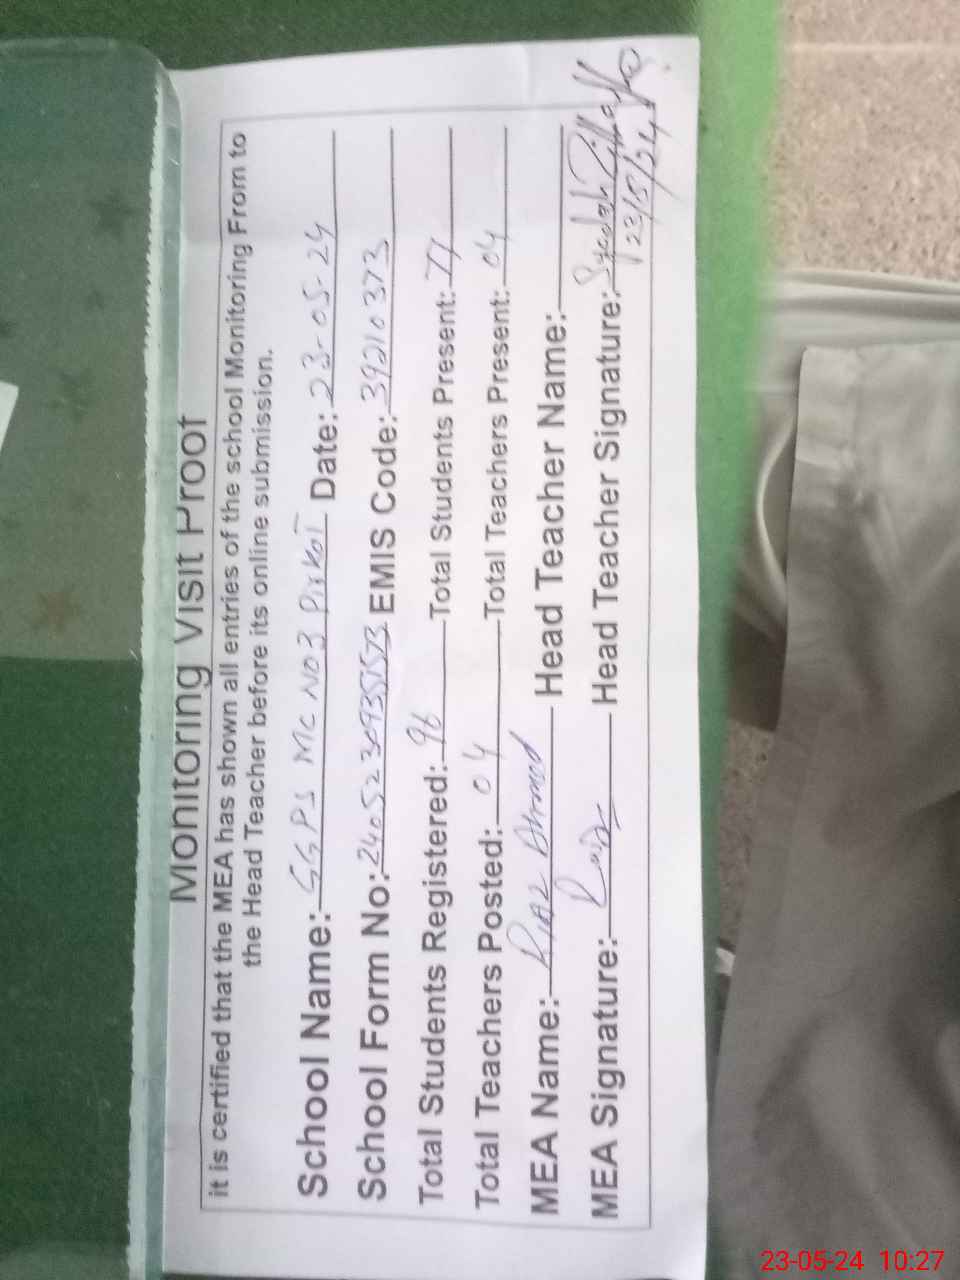 Monitoring Visit Proof
it is certified that the MEA has shown all entries of the school Monitoring From to
the Head Teacher before its online submission.
School Name: GGPS MC NO3 Pirkot Date: 23-05-24
School Form No: 240523093515 EMIS Code: 39210373
Total Students Registered: 96 Total Students Present: 77
Total Teachers Posted: 04 Total Teachers Present: 04
MEA Name: Riaz Ahmed Head Teacher Name:
MEA Signature: Riaz Head Teacher Signature: Syedah
23/5/24
23-05-24 10:27